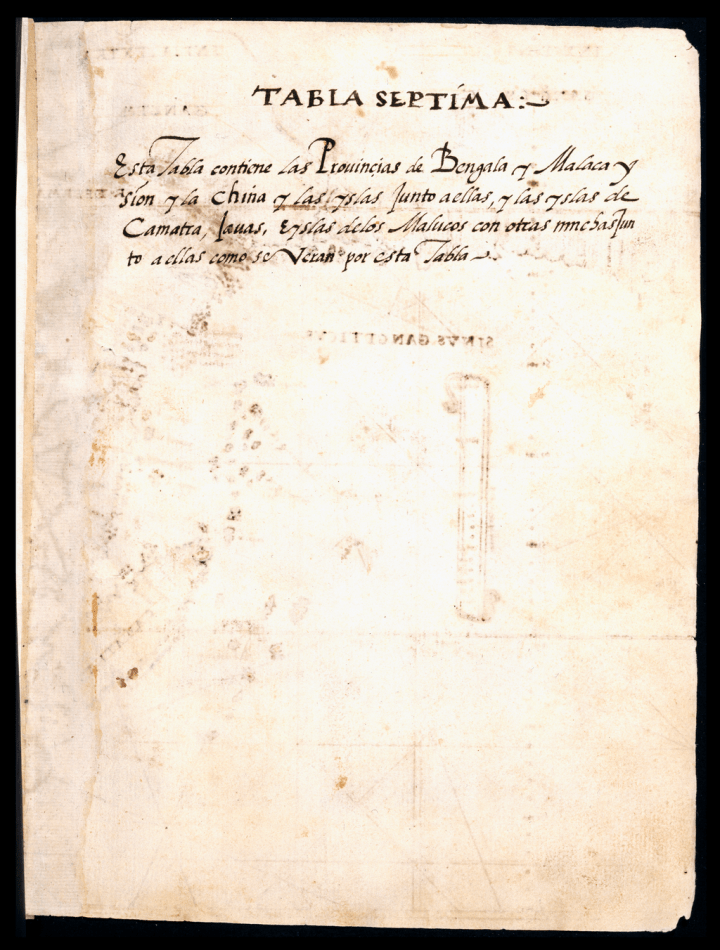 TABLA SEPTIMA:~
Esta Tabla contiene las Prouinçias de Bengala y Malaca y
sion y la china y las yslas Junto aellas, y las yslas de
Camatra, Jauas, E yslas delos Malucos con otras mnchas Jun
to aellas como se Veran por esta Tabla ~.
SINVS GANGETICVS